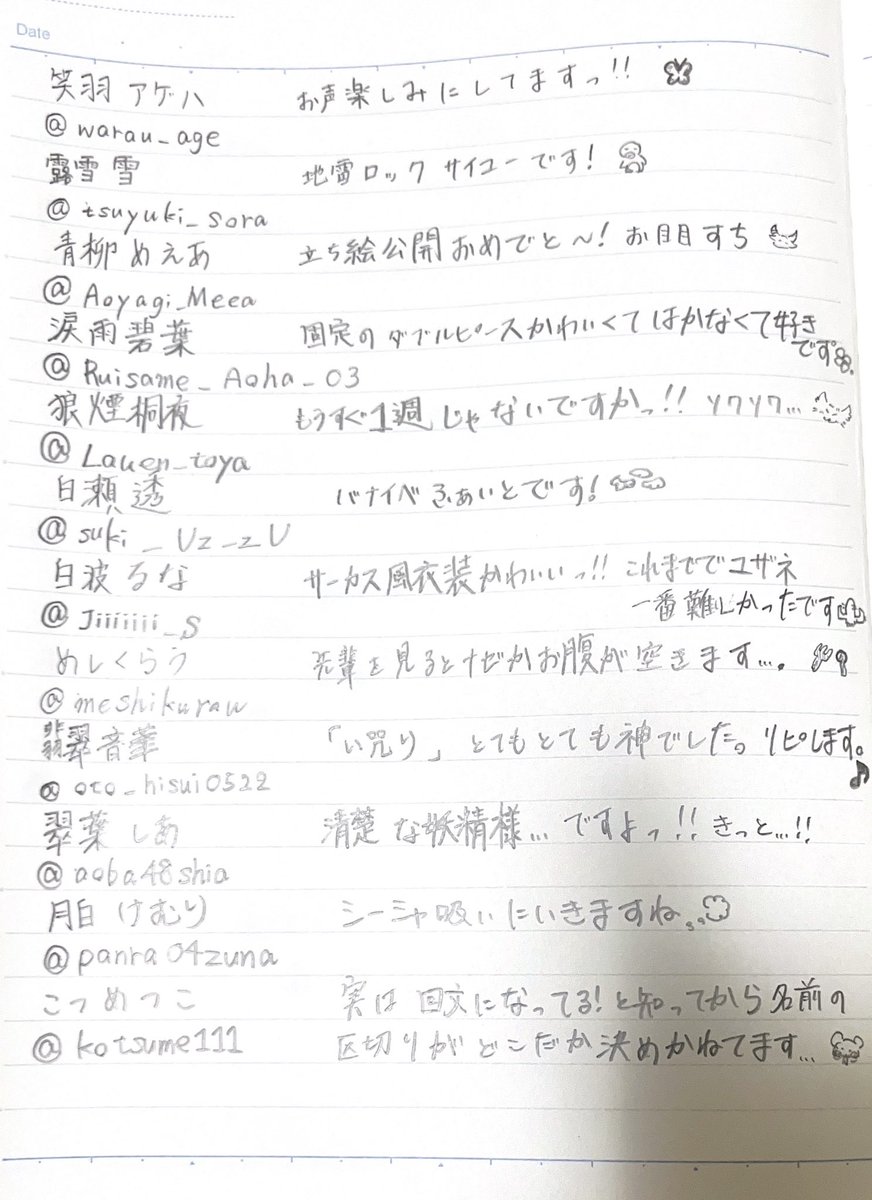 Date
笑羽 アゲハ お声楽しみにしてますっ!!
@warau_age
露雪 雪 地雷ロック サイコーです!
@tsuyuki_sora
青柳 めえあ 立ち絵公開おめでと〜! お目目すち
@Aoyagi_Meea
涙雨碧葉 固定のダブルピースかわいくてはかなくて好き
です。
@Ruisame_Aoha_03
狼煙桐夜 もうすぐ1週じゃないですかっ!! ソワソワ...
@Lauen_toya
白瀬 透 バナイベふぁいとです!
@suki_Uz_zU
白波 るな サーカス風衣装かわいいっ!! これまででユザネ
一番難しかったです
@Jiiiiiii_S
めしくらう 先輩を見るとナゼかお腹が空きます....
@meshikurau
翡翠音華 「い呪り」とてもとても神でしたっ リピします。
@oto_hisui0522
翠葉 しあ 清楚な妖精様... ですよっ!! きっと...!!
@aoba48shia
月白 けむり シーシャ吸いにいきますね
@panra04zuna
こつめつこ 実は 回文になってる!と知ってから名前の
@kotsume111 区切りがどこだか決めかねてます...